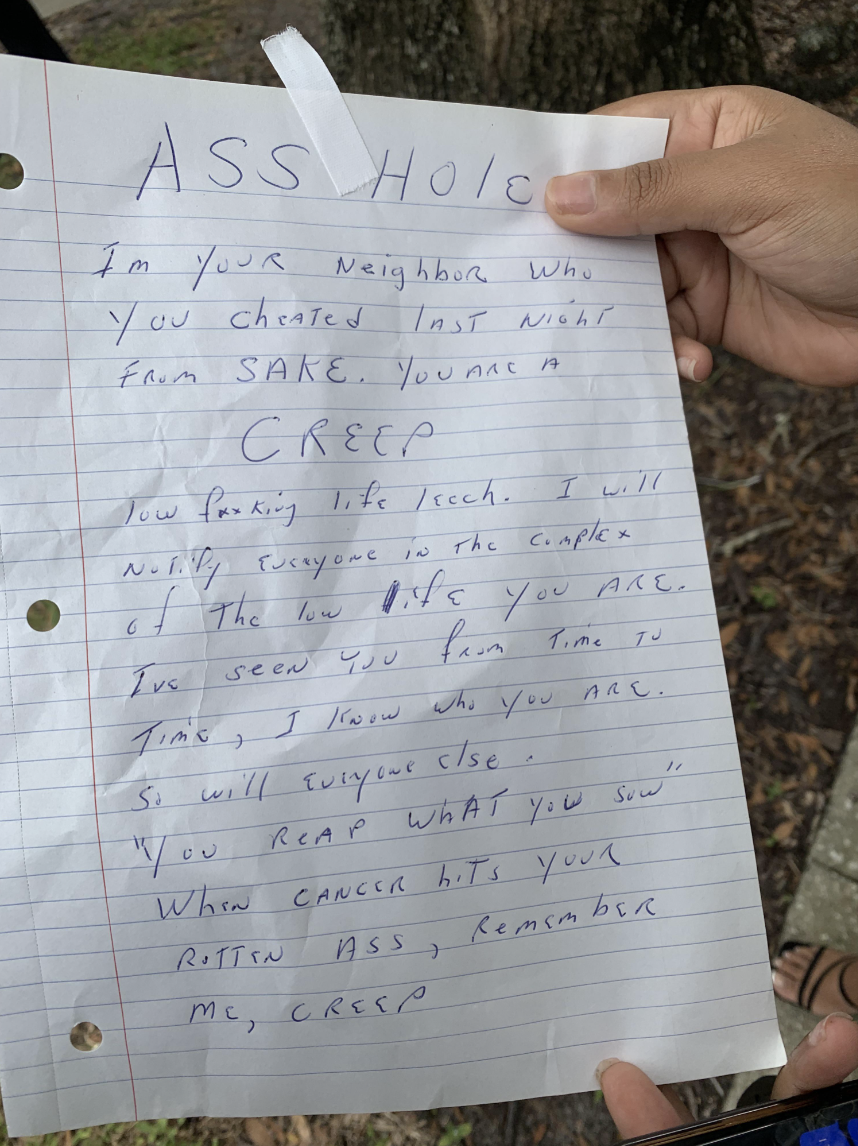 ASS HOlE
Im YOUR NeighboR Who
You cheATed lAST NighT
FRom SAKE. You ARE A
CREEP
low fxxKing life leech. I will
NoTify EveryoNe in The Complex
of The low life you ARE.
Ive seeN You from Time To
Time, I KNow who you ARE.
So will EveryoNe else.
"You ReAP WhAT You sow"
WheN CANCER hiTs YOUR
RoTTEN ASS, RemembeR
Me, CREEP